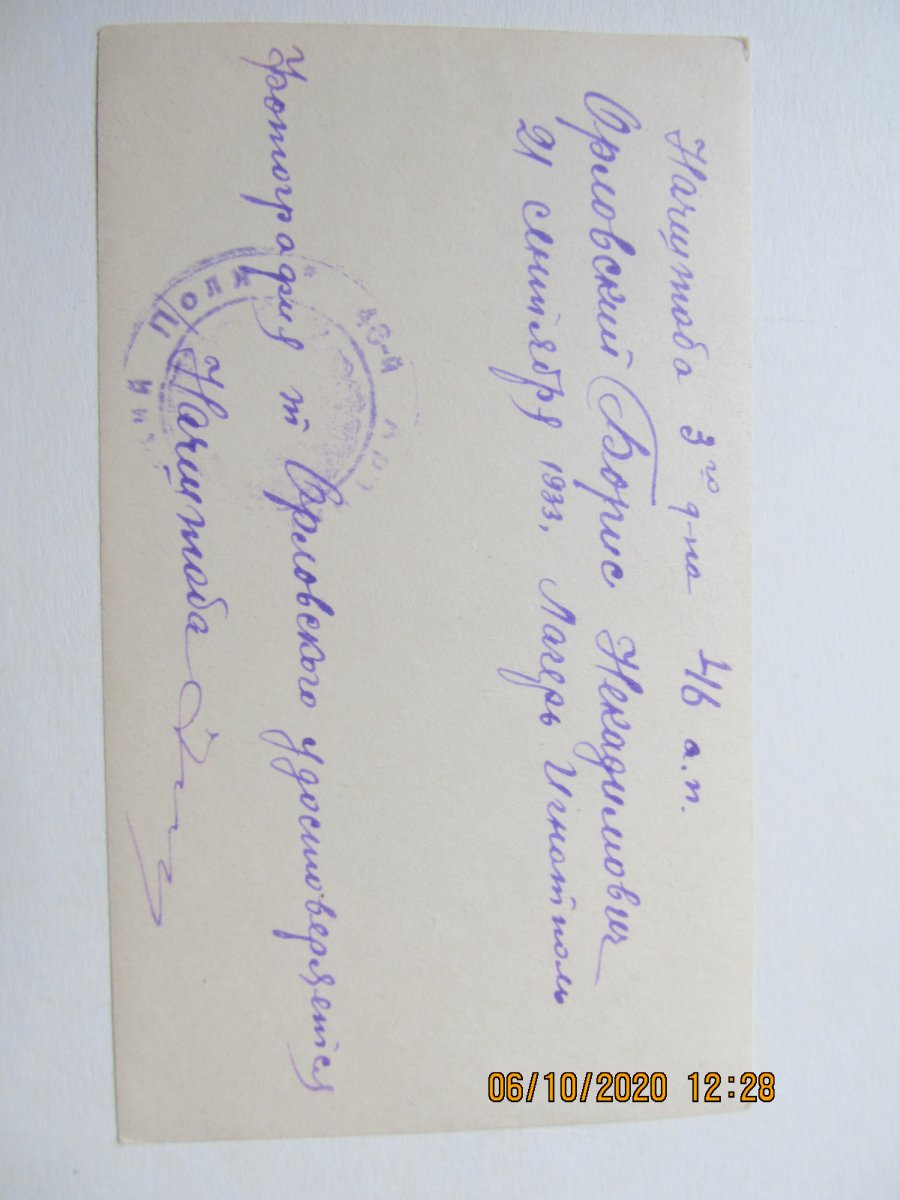 Начштаба 3го д-на 46 а.п.
Орловский Борис Некадимович
21 сентября 1933. Лагерь Игнатполь
Фотография т Орловского удостоверяется
Начштаба
06/10/2020 12:28